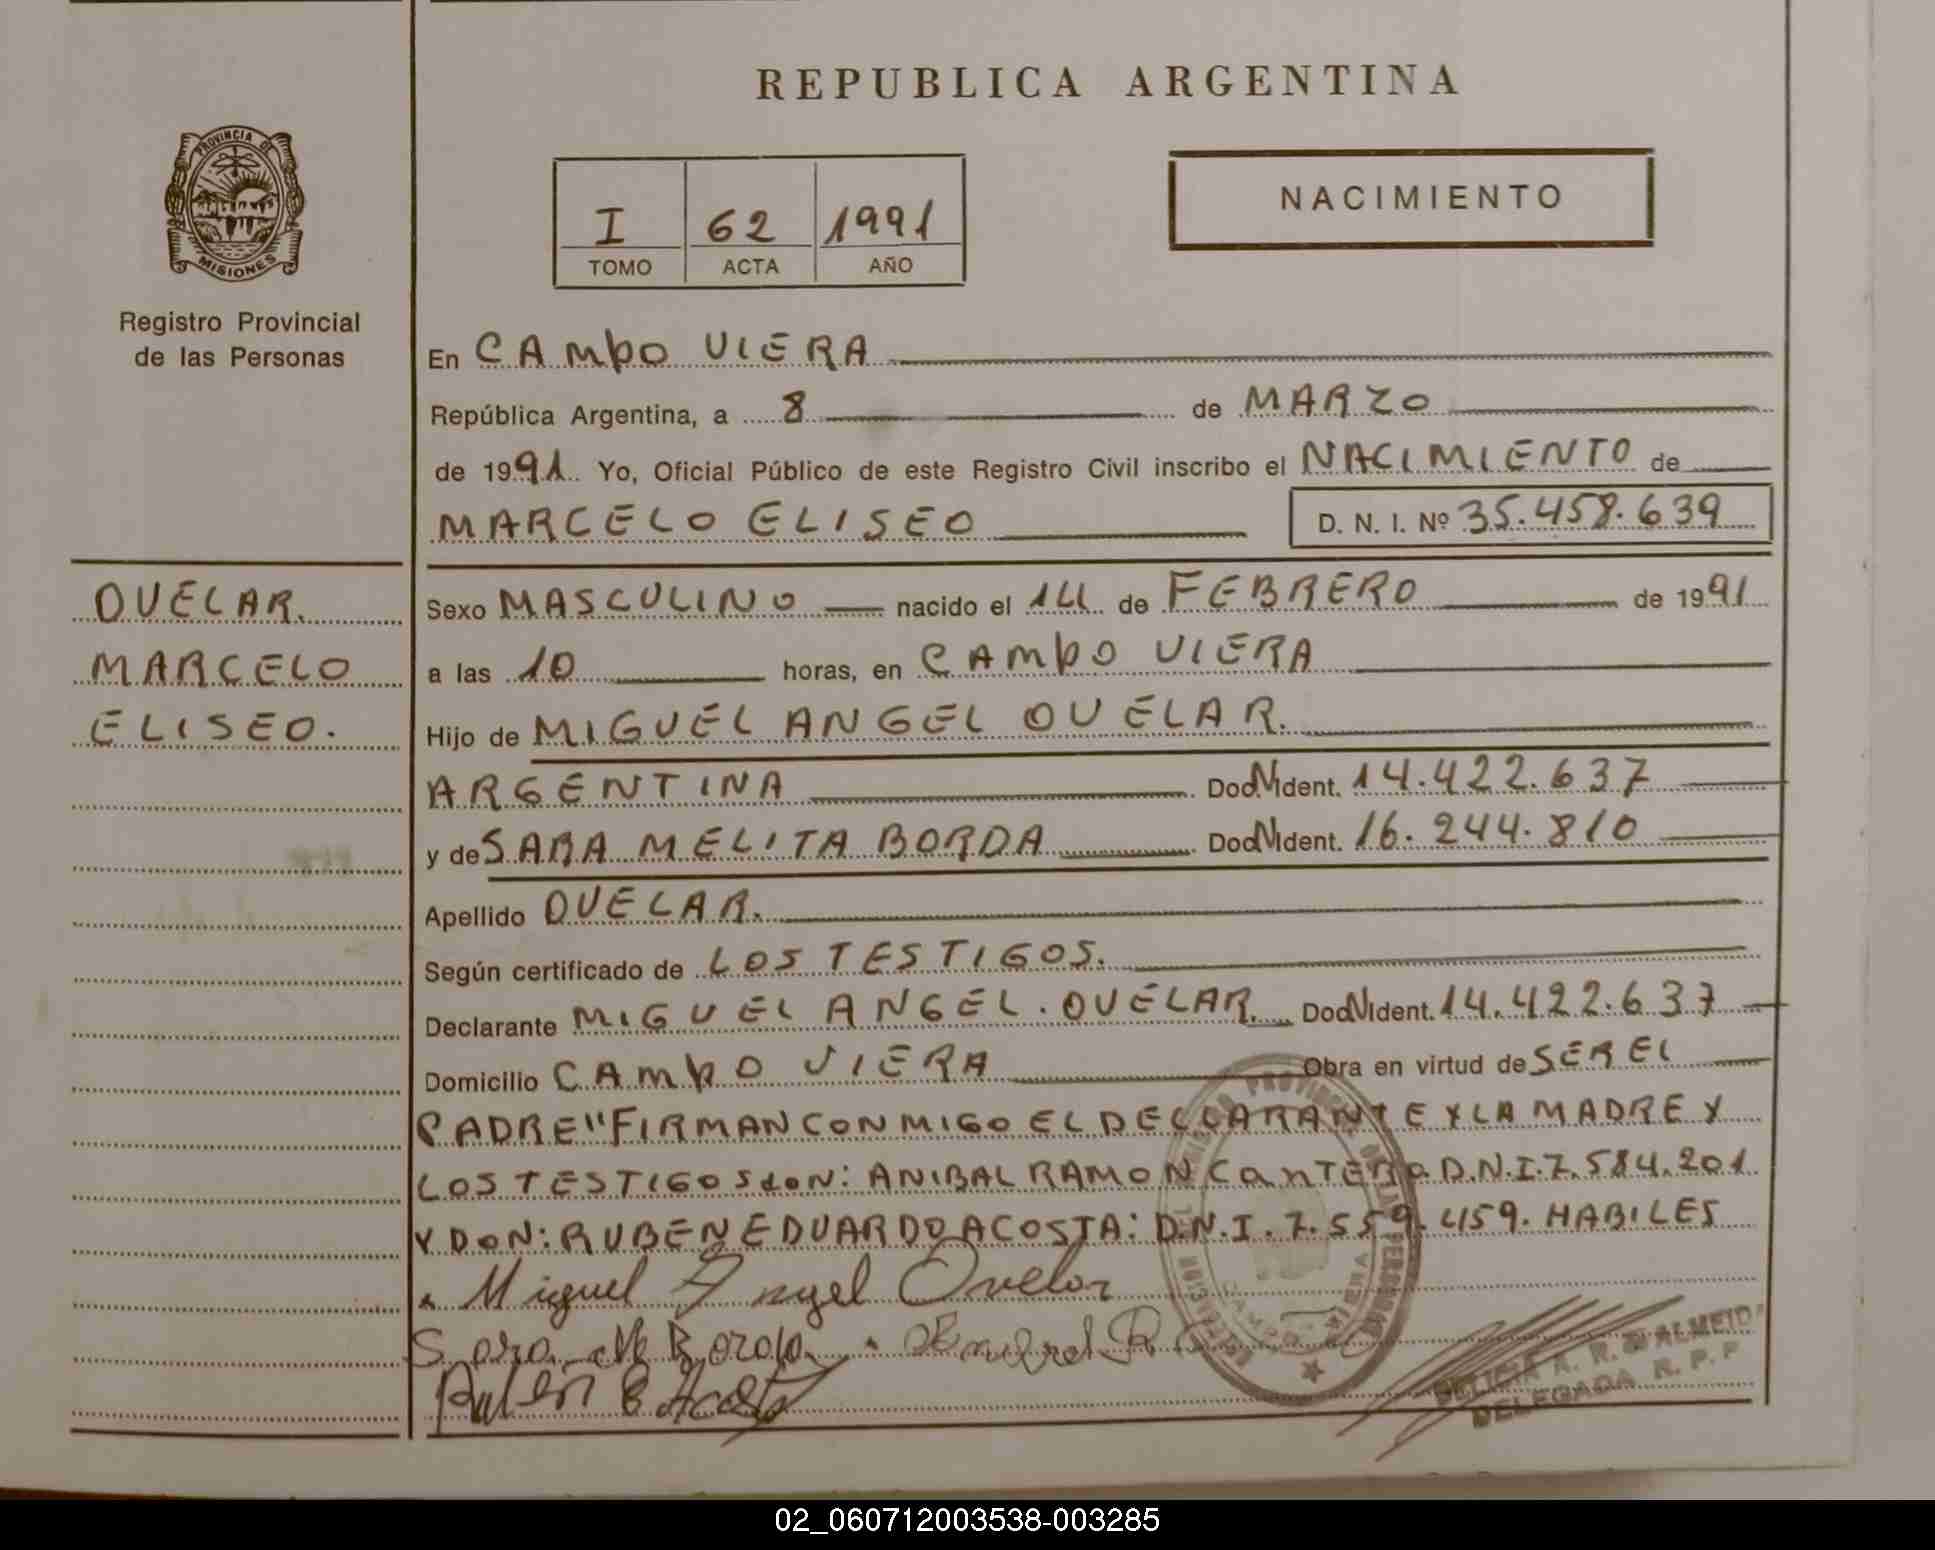 REPUBLICA ARGENTINA
PROVINCIA DE
MISIONES
Registro Provincial
de las Personas
I 62 1991
TOMO ACTA AÑO
NACIMIENTO
En CAMPO VIERA
República Argentina, a 8 de MARZO
de 1991 Yo, Oficial Público de este Registro Civil inscribo el NACIMIENTO de
MARCELO ELISEO D. N. I. Nº 35.458.639
OVELAR.
MARCELO
ELISEO.
Sexo MASCULINO nacido el 14 de FEBRERO de 1991
a las 10 horas, en CAMPO VIERA
Hijo de MIGUEL ANGEL OVELAR.
ARGENTINA DocNIdent. 14.422.637
y de SARA MELITA BORDA DocNIdent. 16.244.810
Apellido OVELAR.
Según certificado de LOS TESTIGOS.
Declarante MIGUEL ANGEL. OVELAR. DocNIdent. 14.422.637
Domicilio CAMPO VIERA Obra en virtud de SER EL
PADRE" FIRMAN CONMIGO EL DECLARANTE Y LA MADRE Y
LOS TESTIGOS DON: ANIBAL RAMON CANTERO D.N.I. 7.584.201
Y DON: RUBEN EDUARDO ACOSTA: D.N.I. 7.559.459. HABILES
Miguel Angel Ovelar
Sara M Borda
Ruben E Acosta
A. R. ALMEID
DELEGADA R. P. P
02_060712003538-003285